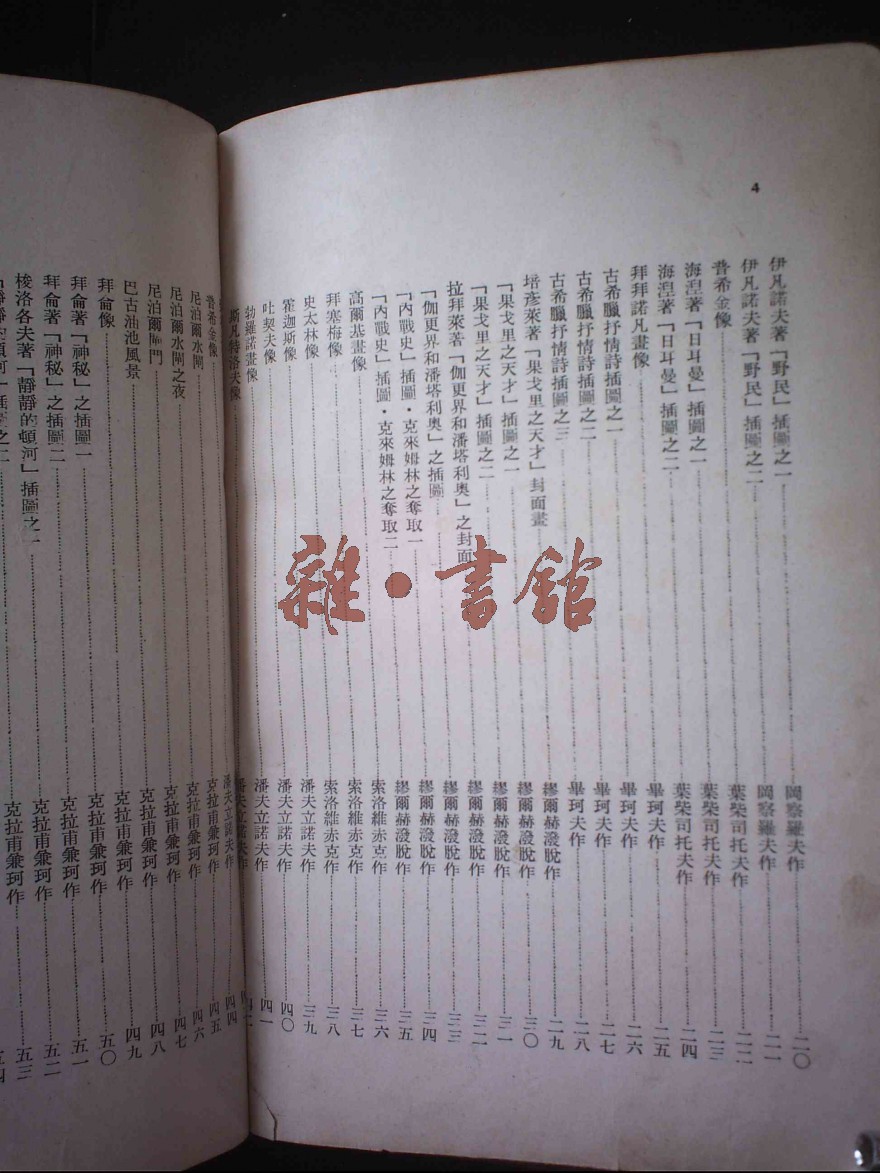 4
伊凡諾夫著「野民」插圖之一……岡察羅夫作……二〇
伊凡諾夫著「野民」插圖之二……岡察羅夫作……二一
普希金像……葉柴司托夫作……二二
海湼著「日耳曼」插圖之一……葉柴司托夫作……二三
海湼著「日耳曼」插圖之二……葉柴司托夫作……二四
拜拜諾凡畫像……畢珂夫作……二五
古希臘抒情詩插圖之一……畢珂夫作……二六
古希臘抒情詩插圖之二……畢珂夫作……二七
古希臘抒情詩插圖之三……畢珂夫作……二八
培彥萊著「果戈里之天才」封面畫……繆爾赫潑脫作……二九
「果戈里之天才」插圖之一……繆爾赫潑脫作……三〇
「果戈里之天才」插圖之二……繆爾赫潑脫作……三一
拉拜萊著「伽更界和潘塔利奧」之封面……繆爾赫潑脫作……三二
「伽更界和潘塔利奧」之插圖……繆爾赫潑脫作……三三
「內戰史」插圖・克來姆林之奪取一……繆爾赫潑脫作……三四
「內戰史」插圖・克來姆林之奪取二……繆爾赫潑脫作……三五
高爾基畫像……索洛維赤克作……三六
拜塞梅像……索洛維赤克作……三七
史太林像……索洛維赤克作……三八
霍迦斯像……潘夫立諾夫作……三九
吐契夫像……潘夫立諾夫作……四〇
勃羅諾畫像……潘夫立諾夫作……四一
斯凡特洛夫像……潘夫立諾夫作
普希金像……潘夫立諾夫作……四四
尼泊爾水閘……克拉甫兼珂作……四五
尼泊爾水閘之夜……克拉甫兼珂作……四六
尼泊爾閘門……克拉甫兼珂作……四七
巴古油池風景……克拉甫兼珂作……四八
拜侖像……克拉甫兼珂作……四九
拜侖著「神秘」之插圖一……克拉甫兼珂作……五〇
拜侖著「神秘」之插圖二……克拉甫兼珂作……五一
梭洛各夫著「靜靜的頓河」插圖之一……克拉甫兼珂作……五二
「靜靜的頓河」插圖之二……克拉甫兼珂作……五三
五四
雜・書館